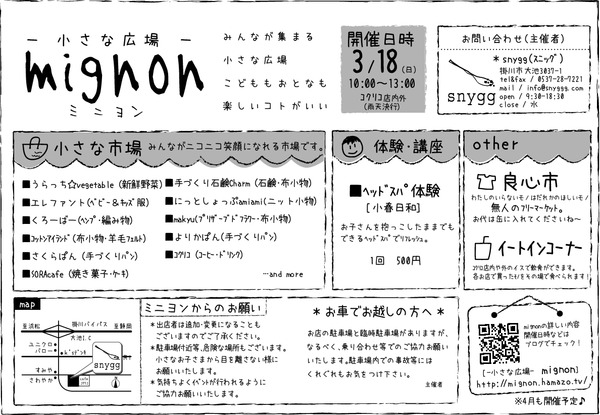 ― 小さな広場 ―
mignon
ミニヨン
みんなが集まる
小さな広場
こどももおとなも
楽しいコトがいい
開催日時
3/18(日)
10:00〜13:00
コクリコ店内外
(雨天決行)
お問い合わせ(主催者)
*snygg(スニッグ)
掛川市大池3037-1
tel&fax / 0537-28-7221
mail / info@snyggg.com
open / 9:30-18:30
close / 水
snygg
小さな市場 みんながニコニコ笑顔になれる市場です。
■うらっち☆vegetable (新鮮野菜)
■エレファント(ベビー&キッズ服)
■くろーばー(ヘンプ・編み物)
■コットンアイランド(布小物・羊毛フェルト)
■さくらぱん(手づくりパン)
■SORAcafe(焼き菓子・ケーキ)
■手づくり石鹸Charm(石鹸・布小物)
■にっとしょっぷamiami(ニット小物)
■makyu(プリザーブドフラワー・布小物)
■よりかぱん(手づくりパン)
■コクリコ(コーヒー・ドリンク)
…and more
体験・講座
■ヘッドスパ体験
[小春日和]
お子さんを抱っこしたままでも
できるヘッドスパでリフレッシュ。
1回 500円
other
良心市
わたしのいらないモノはだれかのほしいモノ。
無人のフリーマーケット。
お代は缶に入れてくださいね〜
イートインコーナー
コクリコ店内や外のイスで飲食ができます。
各お店で買ったモノをその場で食べられます!
map
至浜松
掛川バイパス
至静岡
大池I.C
ユニクロ
バロー
すみや
さわやか
snygg
ミニヨンからのお願い
*出店者は追加・変更になることも
ございますのでご了承ください。
*駐車場付近等、危険な場所もございます。
小さなお子さまから目を離さない様に
お願いいたします。
*気持ちよくイベントが行われるように
ご協力お願いいたします。
*お車でお越しの方へ*
お店の駐車場と臨時駐車場がありますが、
なるべく、乗り合わせ等でのご協力お願い
いたします。駐車場内での事故等には
くれぐれもお気をつけ下さい。
主催者
mignonの詳しい内容
開催日時などは
ブログでチェック!
[-小さな広場- mignon]
http://mignon.hamazo.tv/
※4月も開催予定♪